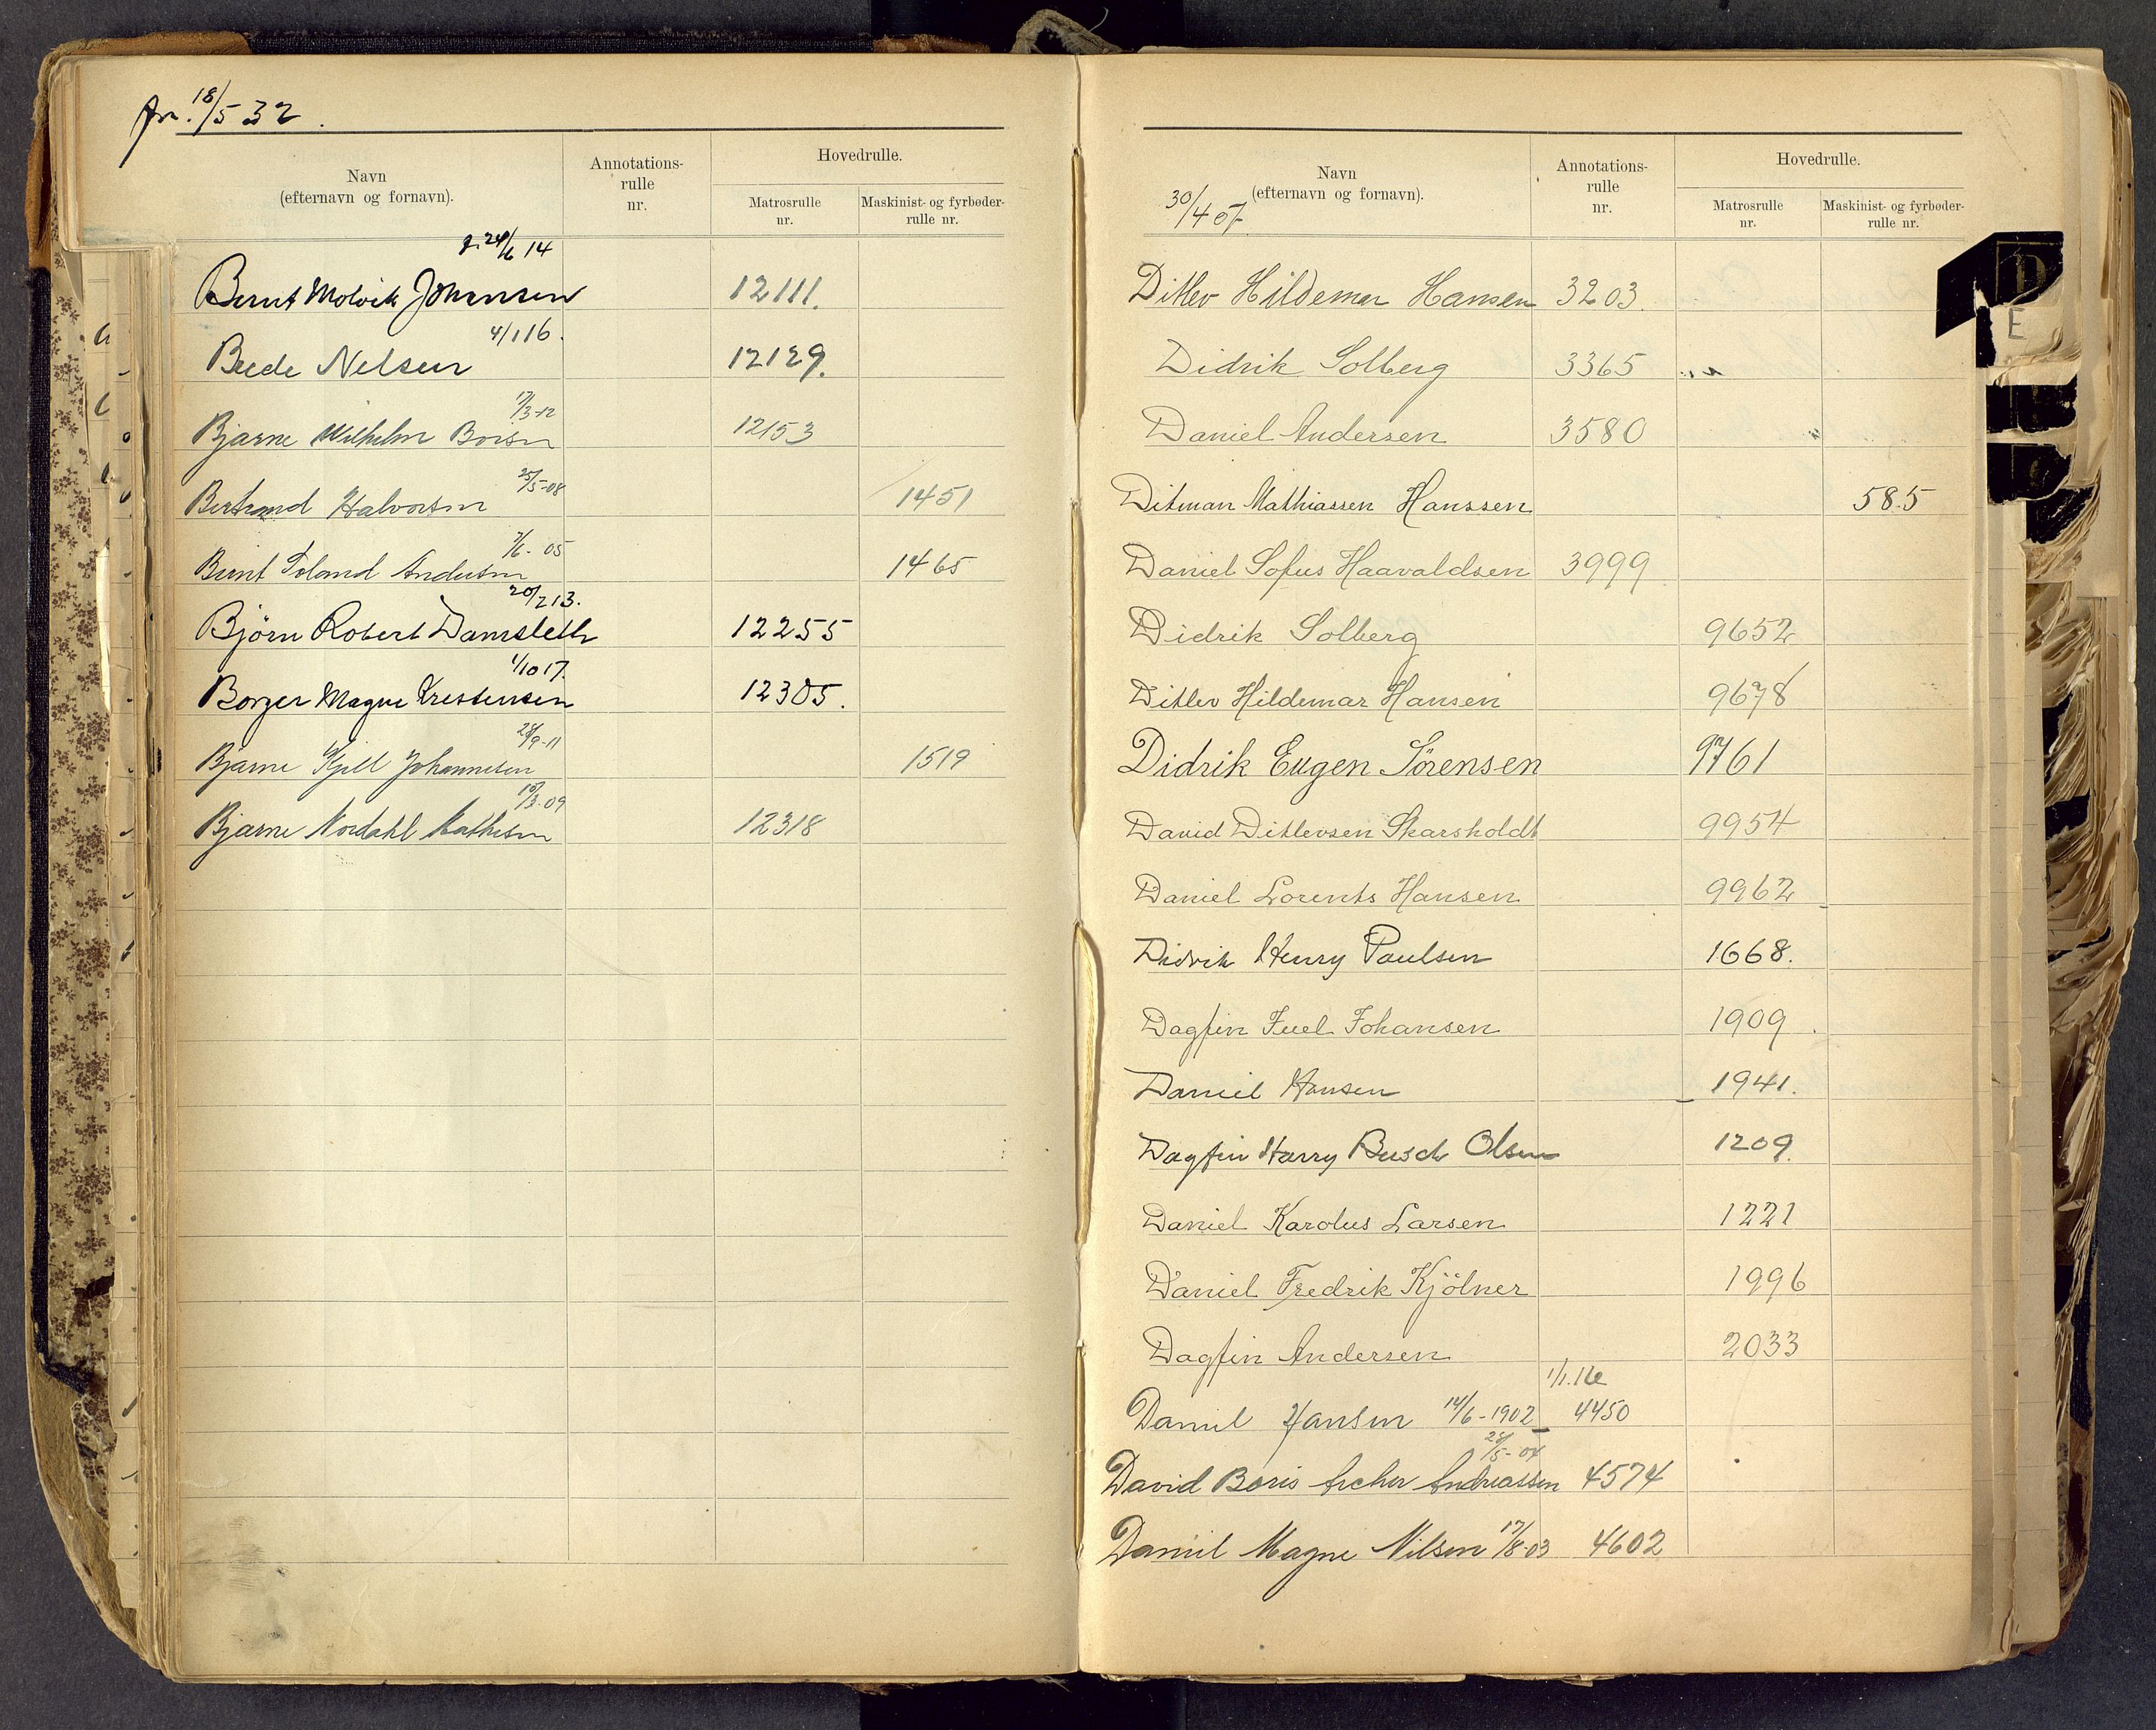 fra 18/5 32.
Navn
(efternavn og fornavn).
Annotations-
rulle
nr.
Hovedrulle.
Matrosrulle
nr.
Maskinist- og fyrbøder-
rulle nr.
f. 24/6 14
Bernt Molvik Johansen 12111.
4/1 16.
Brede Nelsen 12129.
17/3-12
Bjarne Wilhelm Boisen 12153
25/5-08
Bertrand Halvorsen 1451
7/6-05
Bernt Toland Andersen 1465
20/2 13.
Björn Robert Damsleth 12255
1/10 17.
Borger Magne Kristensen 12305.
28/9-11
Bjarne Kjell Johannesen 1519
10/3-09
Bjarne Nordahl Mathisen 12318
Navn
(efternavn og fornavn).
30/4 07
Annotations-
rulle
nr.
Hovedrulle.
Matrosrulle
nr.
Maskinist- og fyrbøder-
rulle nr.
D
E
Ditlev Hildemar Hansen 3203.
Didrik Solberg 3365
Daniel Andersen 3580
Ditman Mathiassen Hanssen 585
Daniel Sofus Haavaldsen 3999
Didrik Solberg 9652
Ditlev Hildemar Hansen 9678
Didrik Eugen Sörensen 9761
David Ditlevsen Skarsholdt 9954
Daniel Lorents Hansen 9962
Didrik Henry Paulsen 1668.
Dagfin Juel Johansen 1909.
Daniel Hansen 1941.
Dagfin Harry Busch Olsen 1209.
Daniel Karolus Larsen 1221
Daniel Fredrik Kjölner 1996
Dagfin Andersen 2033
Daniel Hansen 14/6-1902 4450
28/5-04
David Boris Archer Andreassen 4574
Daniel Magne Nilsen 17/8-03 4602